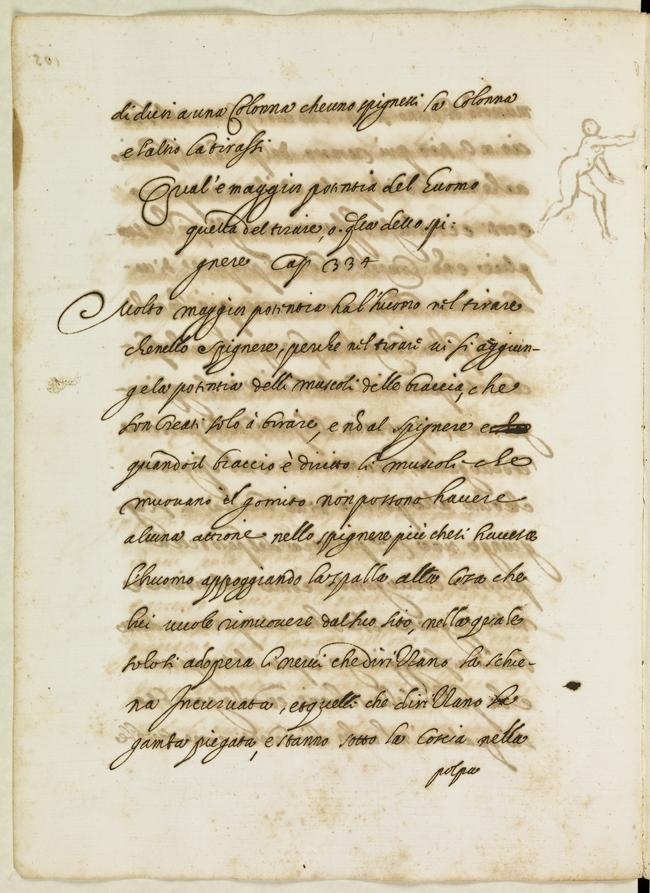 di dietro a una Colonna che uno spignessi la Colonna
e l'altro la tirassi
Qual'è maggior potentia del huomo
quella del tirare, o q̃lla dello spi:
gnere Cap 334
Molto maggior potentia ha l'huomo nel tirare
che nello spignere, perche nel tirare vi si aggiun-
ge la potentia delli muscoli delle braccia, che
son creati solo à tirare, e nõ al spignere e
quando il braccio è diritto li muscoli che
muovano il gomito non possono havere
alcuna attione nello spignere più che si havesse
l'huomo appoggiando la spalla alla cosa che
lui vuole rimuovere dal suo sito, nella quale
solo si adopera li nervi che dirizzano la schie-
na Incurvata, et quelli che dirizzano la
gamba piegata, e stanno sotto la Coscia nella
polpa